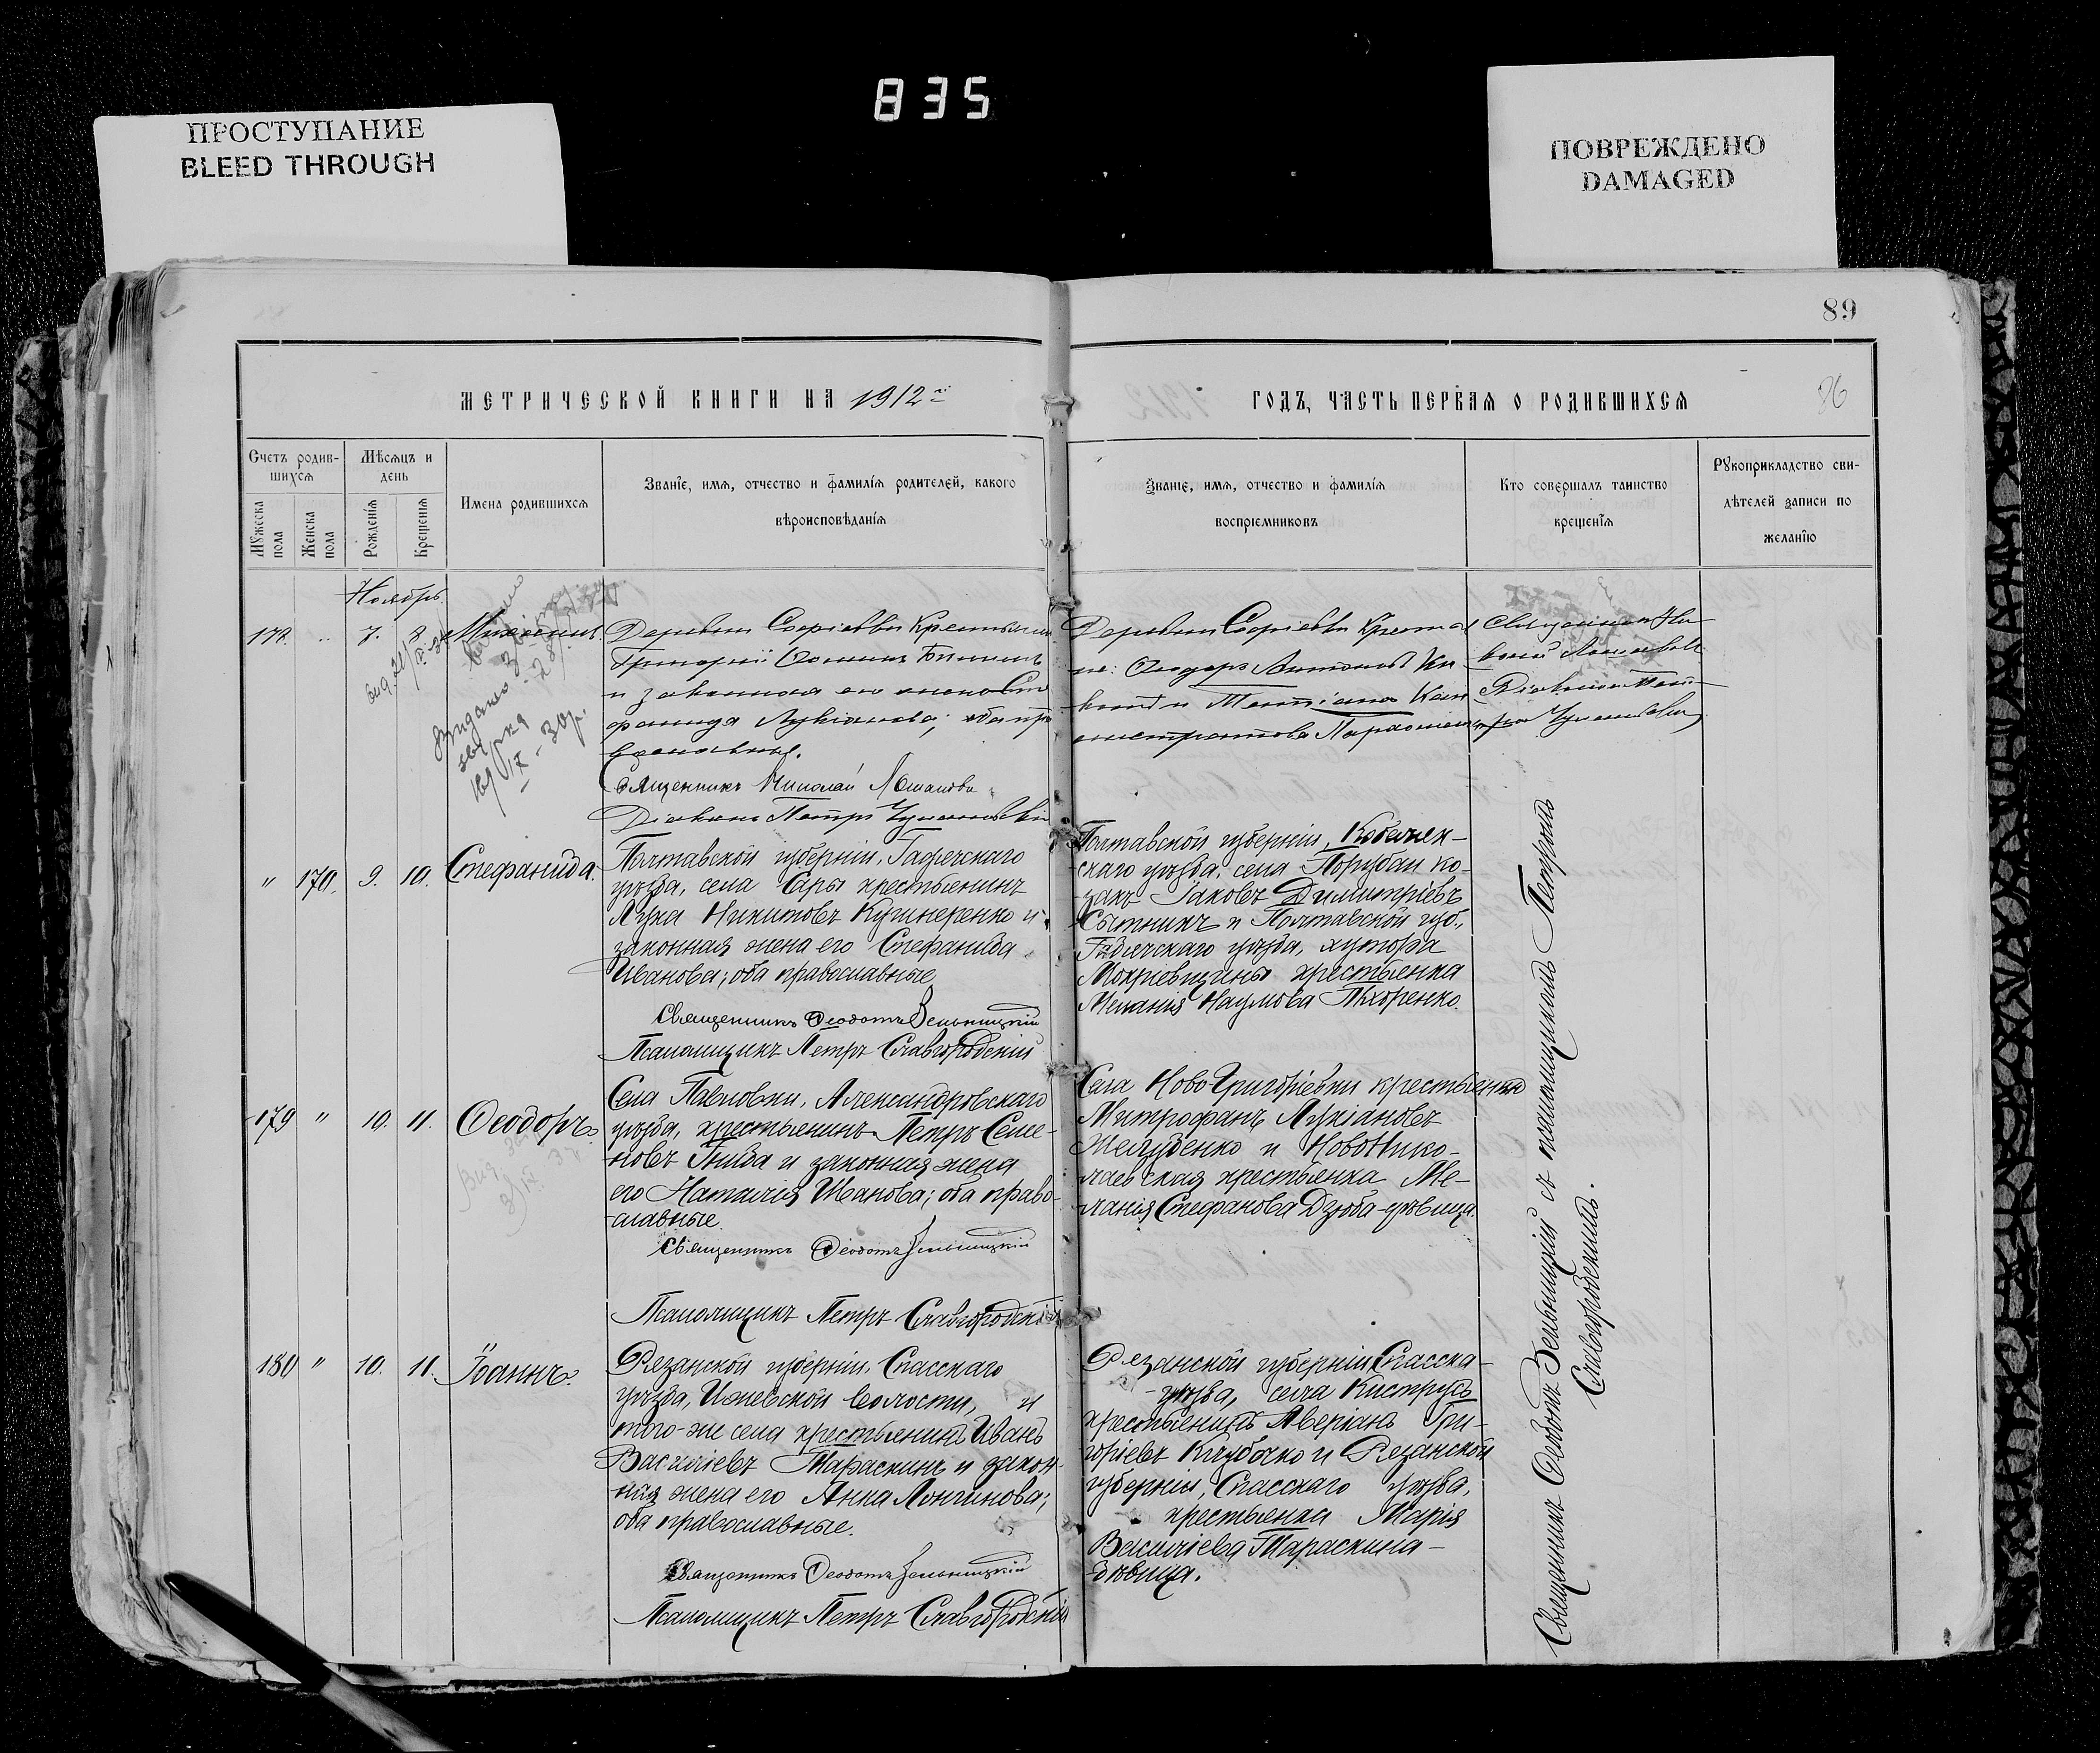 835
ПРОСТУПАНИЕ
BLEED THROUGH
ПОВРЕЖДЕНО
DAMAGED
89
МЕТРИЧЕСКОЙ КНИГИ НА 1912й
ГОДЪ, ЧАСТЬ ПЕРВАЯ О РОДИВШИХСЯ
86
Счетъ родив-
шихся
Мужеска пола
Женска пола
Мѣсяцъ и
день
Рожденія
Крещенія
Имена родившихся
Званіе, имя, отчество и фамилія родителей, какого
вѣроисповѣданія
Званіе, имя, отчество и фамилія
воспріемниковъ
Кто совершалъ таинство
крещенія
Рукоприкладство сви-
дѣтелей записи по
желанію
Ноябрь.
178. 7. 8.
Деревни Софіевки Крестьянинъ
Григорій
и законная его жена Сте
фанида Лукіанова; оба пра
вославные.
Священникъ Николай
Діаконъ Петръ
Деревни Софіевки Крестья
не: Ѳеодоръ Антоновъ
и Татіана Кали
стратова
Священникъ Ни
колай
Діаконъ Пет
ръ
Видано
IX - 30р.
" 170. 9. 10. Стефанида.
Полтавской губерніи, Гадячскаго
уѣзда, села Сары крестьянинъ
Лука Никитовъ Кушнеренко и
законная жена его Стефанида
Иванова; оба православные
Священникъ Ѳеодотъ Зельницкій
Псаломщикъ Петръ Славгородскій
Полтавской губерніи, Кобеляк-
скаго уѣзда, села Порубаи ко-
закъ Іаковъ Димитріевъ
Сытникъ и Полтавской губ.,
Гадячскаго уѣзда, хутора
Мокіевщины крестьянка
Меланія Наумова Тхоренко.
179 " 10. 11. Ѳеодоръ.
Села Павловки, Александровскаго
уѣзда, крестьянинъ Петръ Семе-
новъ Гнида и законная жена
его Наталія Иванова; оба право-
славные.
Священникъ Ѳеодотъ Зельницкій
Псаломщикъ Петръ Славгородскій
Села НовоГригорьевки крестьянинъ
Митрофанъ Лукіановъ
Желуденко и НовоНико-
лаевская крестьянка Ме-
ланія Стефанова Дзюба-дѣвица.
180 " 10. 11. Іоаннъ.
Рязанской губерніи, Спасскаго
уѣзда, Ижевской волости, и
того-же села крестьянинъ Иванъ
Василіевъ Тараскинъ и закон-
ная жена его Анна Лонгинова;
оба православные.
Священникъ Ѳеодотъ Зельницкій
Псаломщикъ Петръ Славгородскій
Рязанской губерніи, Спасска-
уѣзда, села Киструсъ
крестьянинъ Аверіанъ Гри-
горіевъ Клубочко и Рязанской
губерніи, Спасскаго уѣзда,
крестьянка Марія
Василіева Тараскина-
дѣвица.
Священникъ Ѳеодотъ Зельницкій съ псаломщикомъ Петромъ
Славгородскимъ.